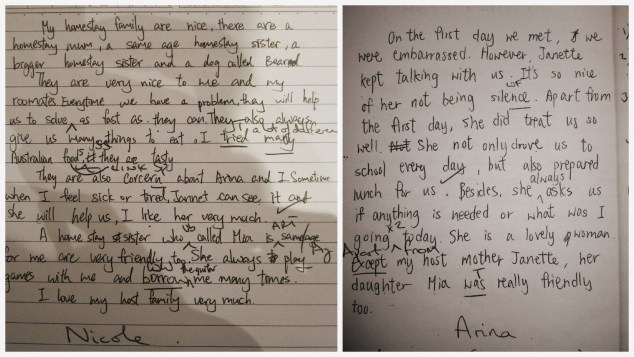 My homestay family are nice, there are a
homestay mum, a same age homestay sister, a
bigger homestay sister and a dog called Bearnd
They are very nice to me and my
roomates. Everytime we have a problem, they will help
us to solve as fast as they can. They also always
give us many things to eat, I tried many
a lot of different
Australian food, they are tasty
They are also concern about Arina and I Sometime
when I feel sick or tired, Jannet can see it and
she will help us, I like her very much.
A homestay sister who called Mia is same age
for me are very friendly too. She always play
games with me and borrow me many times.
the guitar
I love my host family very much.
Nicole
On the first day we met, we
were embarrassed. However, Janette
kept talking with us. It's so nice
of her not being silence. Apart from
the first day, she did treat us so
well. She not only drove us to
school every day, but also prepared
lunch for us. Besides, she always asks us
if anything is needed or what was I
going x2 today. She is a lovely woman.
Apart from
Except my host mother Janette, her
daughter Mia was really friendly
too.
Arina